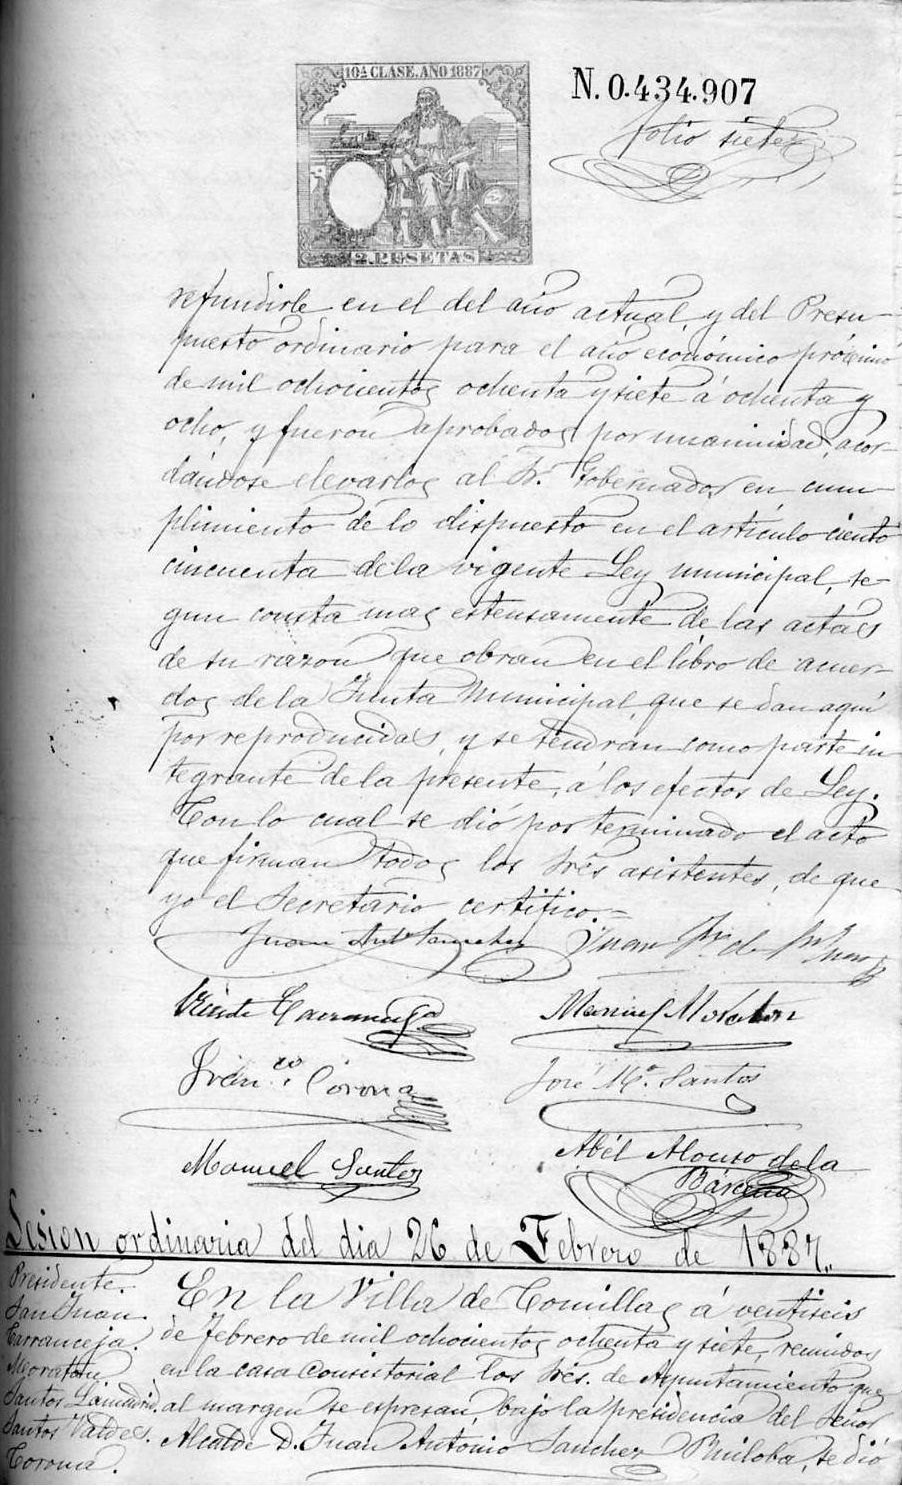 10ª CLASE. AÑO 1887
2. PESETAS
N. 0.434.907
folio siete
refundirle en el del año actual, y del Presu-
puesto ordinario para el año económico próximo
de mil ochocientos ochenta y siete á ochenta y
ocho, y fueron aprobados por unanimidad, acor-
dándose elevarlos al Sr. Gobernador en cum-
plimiento de lo dispuesto en el artículo ciento
cincuenta de la vigente Ley municipal, se-
gun consta mas estensamente de las actas
de su razon que obran en el libro de acuer-
dos de la Junta Municipal, que se dan aquí
por reproducidas, y se tendrán como parte in
tegrante de la presente, á los efectos de Ley.
Con lo cual se dió por terminado el acto
que firman todos los Srés asistentes, de que
yo el Secretario certifico.=
Juan Antº Sanchez
Juan
Vicente Carranceja
Manuel Moraton
Francº. Corona
José Mª. Santos
Manuel Santos
Abél Alonso de la
Bárcena
Sesion ordinaria del dia 26 de Febrero de 1887.
Presidente.
San Juan.
Carranceja.
Moratón.
Santos Lamadrid.
Santos Valdes.
Corona.
En la Villa de Comillas á ventiseis
de febrero de mil ochocientos ochenta y siete, reunidos
en la casa Consistorial los Srés. de Ayuntamiento que
al margen se espresan, bajo la presidencia del Señor
Alcalde D. Juan Antonio Sanchez Ruiloba, se dió